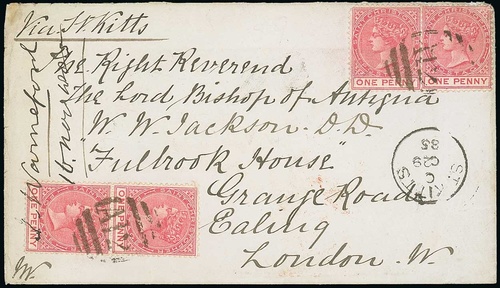 Via St. Kitts
The Right Reverend
The Lord Bishop of Antigua
"W. W. Jackson. D.D.
"Fulbrook House"
Grange Road
Ealing
London. W.
ONE PENNY
ONE PENNY
ONE PENNY
ONE PENNY
ST. KITTS
C